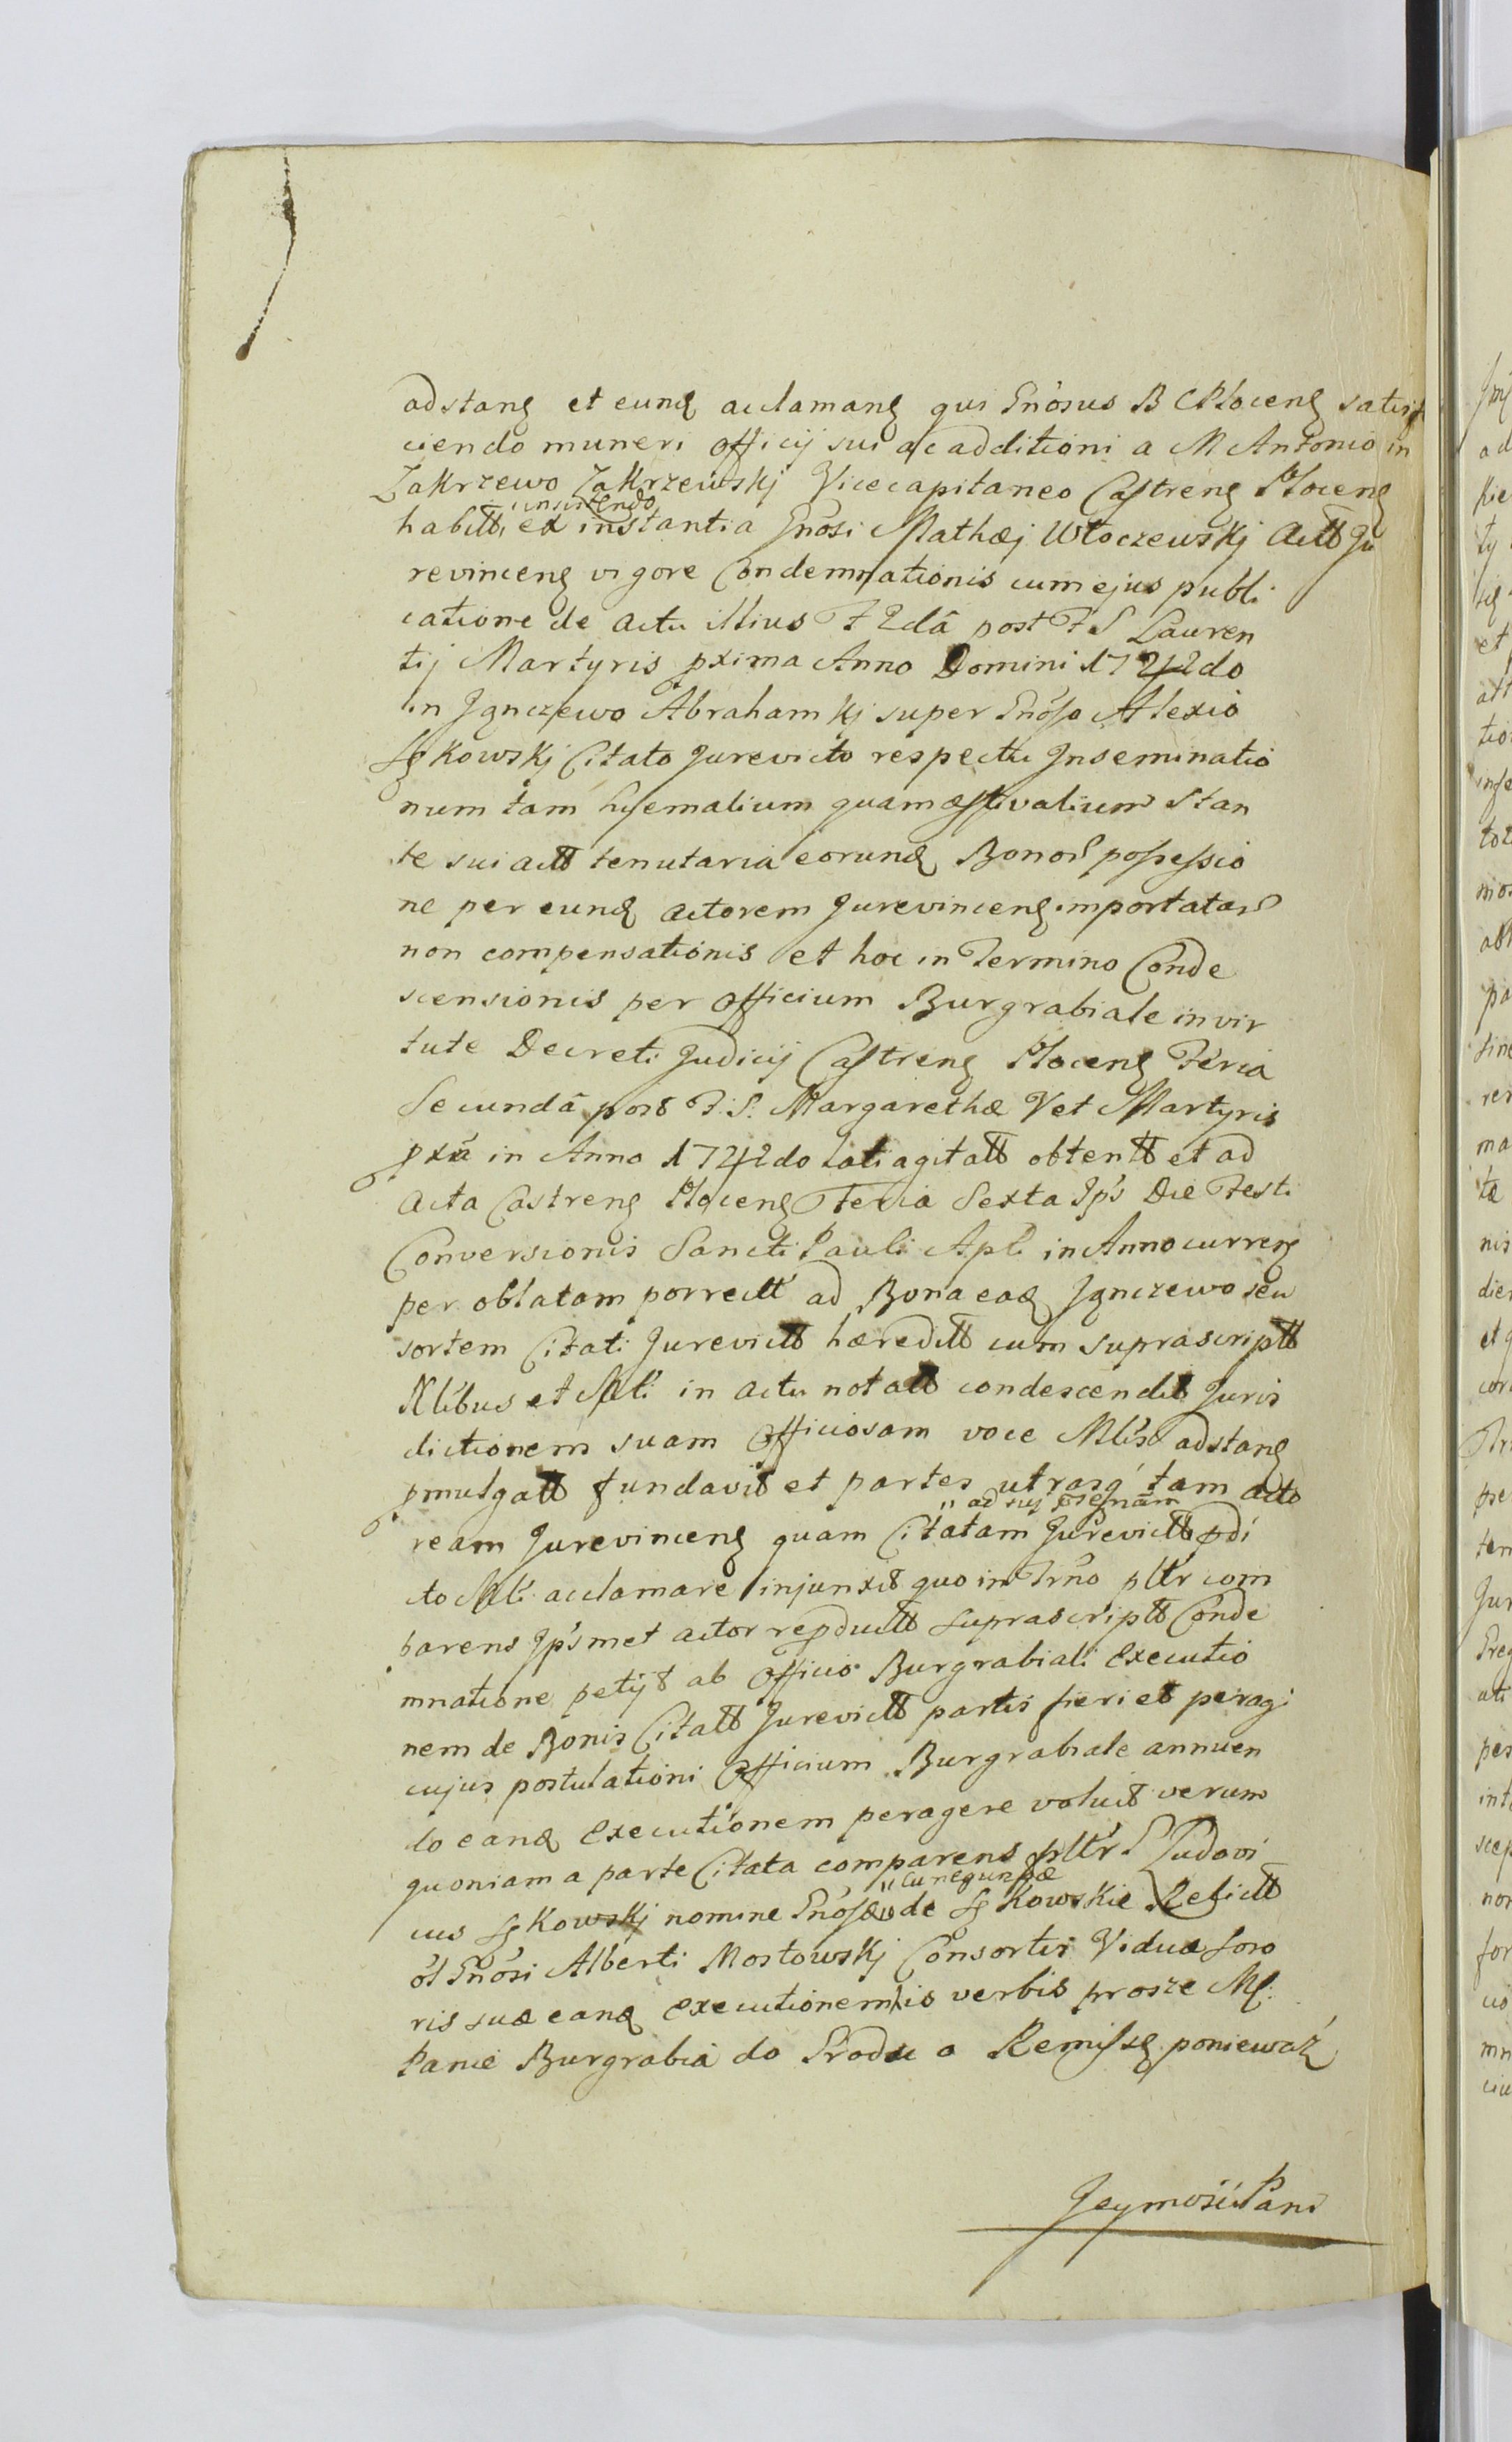 adstanꝭ et eunđ acclamanꝭ qui Gnosus B C Płocenꝭ satisf
ciendo muneri officij sui ac additioni a M Antonio in
Zakrzewo Zakrzewskj Vicecapitaneo Castrenꝭ Płocenꝭ
insistendo
habitt, ex instantia Gnosi Mathæj Włoczewskj Actt Ju
revincenꝭ vigore Condemnationis cum ejus publi
catione de actu illius F 2dâ post F S Lauren
tij Martyris pxima Anno Domini 1742do
in Jgnczewo Abrahamkj super Gnôso Alexio
Łękowskj Citato Jurevicto respectu Jnseminatio
num tam hyemalium quam æstivalium Stan
te sui actt tenutaria eorunđ Bonoꝝ possessio
ne per eunđ actorem Jurevincenꝭ importataꝝ
non compensationis et hoc in Termino Conde
scensionis per officium Burgrabiale in vir
tute Decreti Judicij Castrenꝭ Płocenꝭ Feria
Secundâ post F. S. Margarethæ V et Martyris
pxâ in Anno 1742do lati agitatt obtentt et ad
Acta Castrenꝭ Płocenꝭ Feria Sexta Jps Die Festi
Conversionis Sancti Pauli Apli in Anno currenꝭ
per oblatam porrectt ad Bona eađ Jgnczewo seu
sortem Citati Jurevictt hæreditt cum suprascriptt
Nlibus et Mli in actu notatt condescendit Juris
dictionem suam Officiosam voce Mlis adstanꝭ
pmulgatt fundavit et partes utrasq́ tam acto
" ad sui psentiam
ream Jurevincenꝭ quam Citatam Jurevictt pdi
cto Mli acclamare injunxit quo in Trño pltr com
parens Jpsmet actor reproductt suprascriptt Conde
mnatione petijt ab officio Burgrabiali Executio
nem de Bonis Citatt Jurevictt partis fieri et peragi
cujus postulationi Officium Burgrabiale annuen
do eanđ Executionem peragere voluit verum
quoniam a parte Citata comparens pltr G Ludovi
" Cunegundæ
cus Łękowskj nomine Gnôsæ " de Łękowskie Relictt
ol Gnôsi Alberti Mostowskj Consortis Viduæ soro
ris suæ eanđ Executionem his verbis prosze M.
Panie Burgrabia do Grodu o Remissę ponieważ
Jeymość Pani